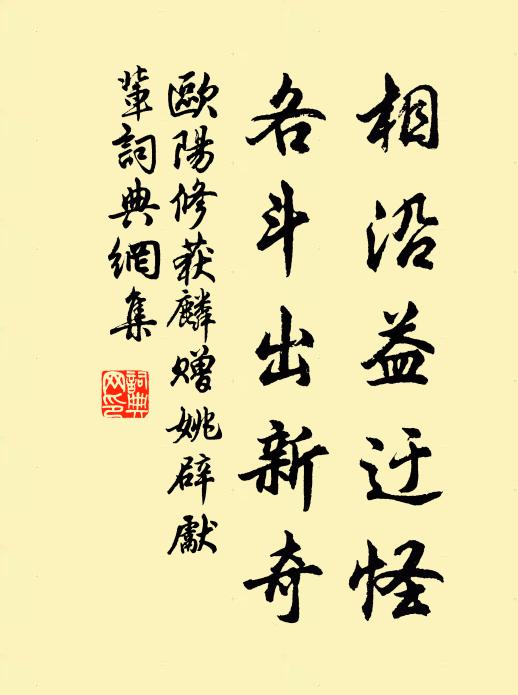 相沿益迂怪
各斗出新奇
歐陽修获麟贈姚辟獻
輩詞典網集
詞典网印